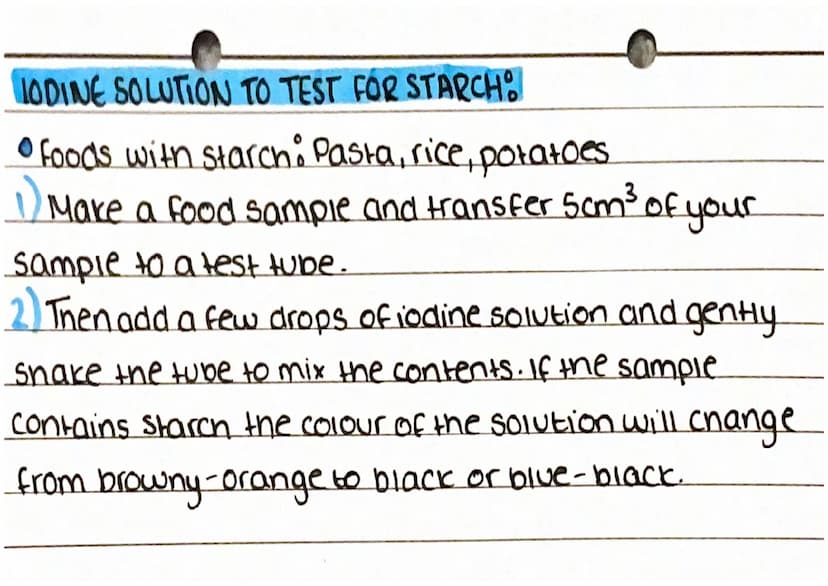 IODINE SOLUTION TO TEST FOR STARCH:
• Foods with starch: Pasta, rice, potatoes
1) Make a food sample and transfer 5cm³ of your
sample to a test tube.
2) Then add a few drops of iodine solution and gently
shake the tube to mix the contents. If the sample
contains starch the colour of the solution will change
from browny-orange to black or blue-black.